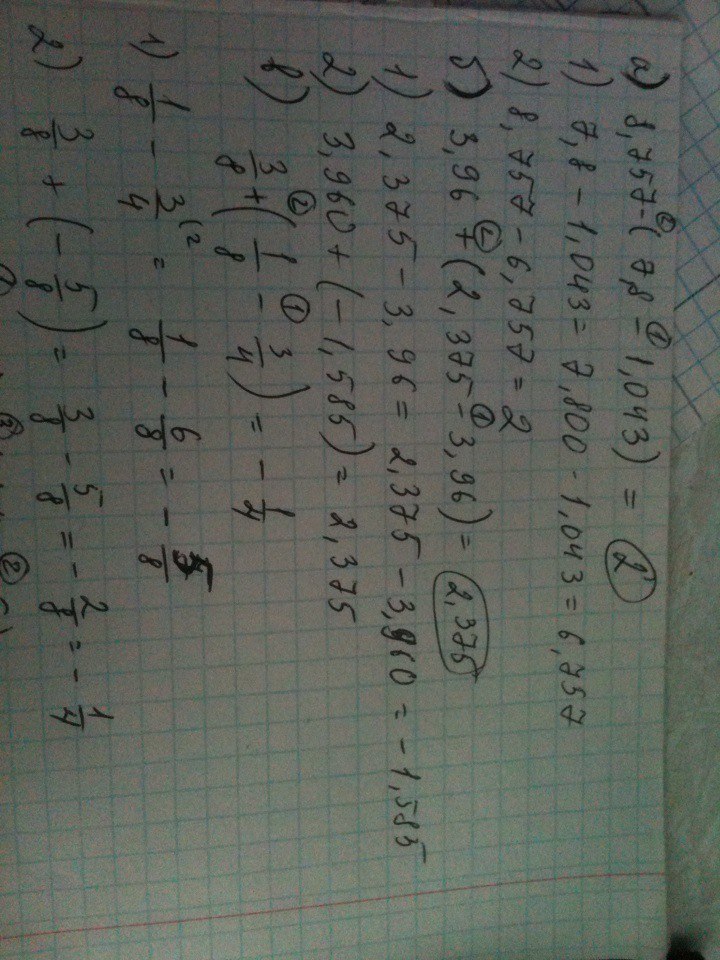 а) 8,757 -② (7,8 -① 1,043) = 2
1) 7,8 - 1,043 = 7,800 - 1,043 = 6,757
2) 8,757 - 6,757 = 2
б) 3,96 +② (2,375 -① 3,96) = 2,375
1) 2,375 - 3,96 = 2,375 - 3,960 = -1,585
2) 3,960 + (-1,585) = 2,375
в) 3/8 +② (1/8 -① 3/4) = -1/4
1) 1/8 - 3/4 (2 = 1/8 - 6/8 = -5/8
2) 3/8 + (-5/8) = 3/8 - 5/8 = -2/8 = -1/4